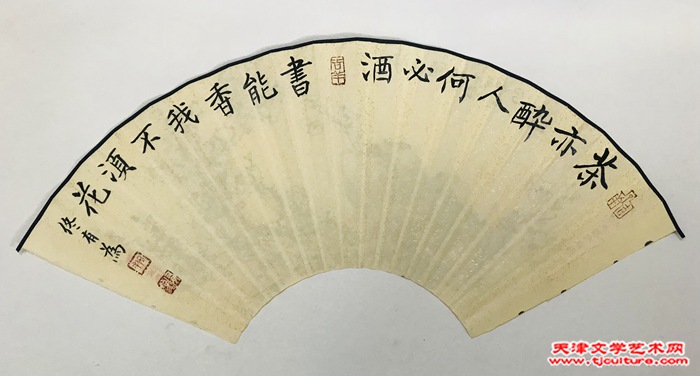 茶亦醉人何必酒
書能香我不須花
佟有為
天津文学艺术网
www.tjculture.com